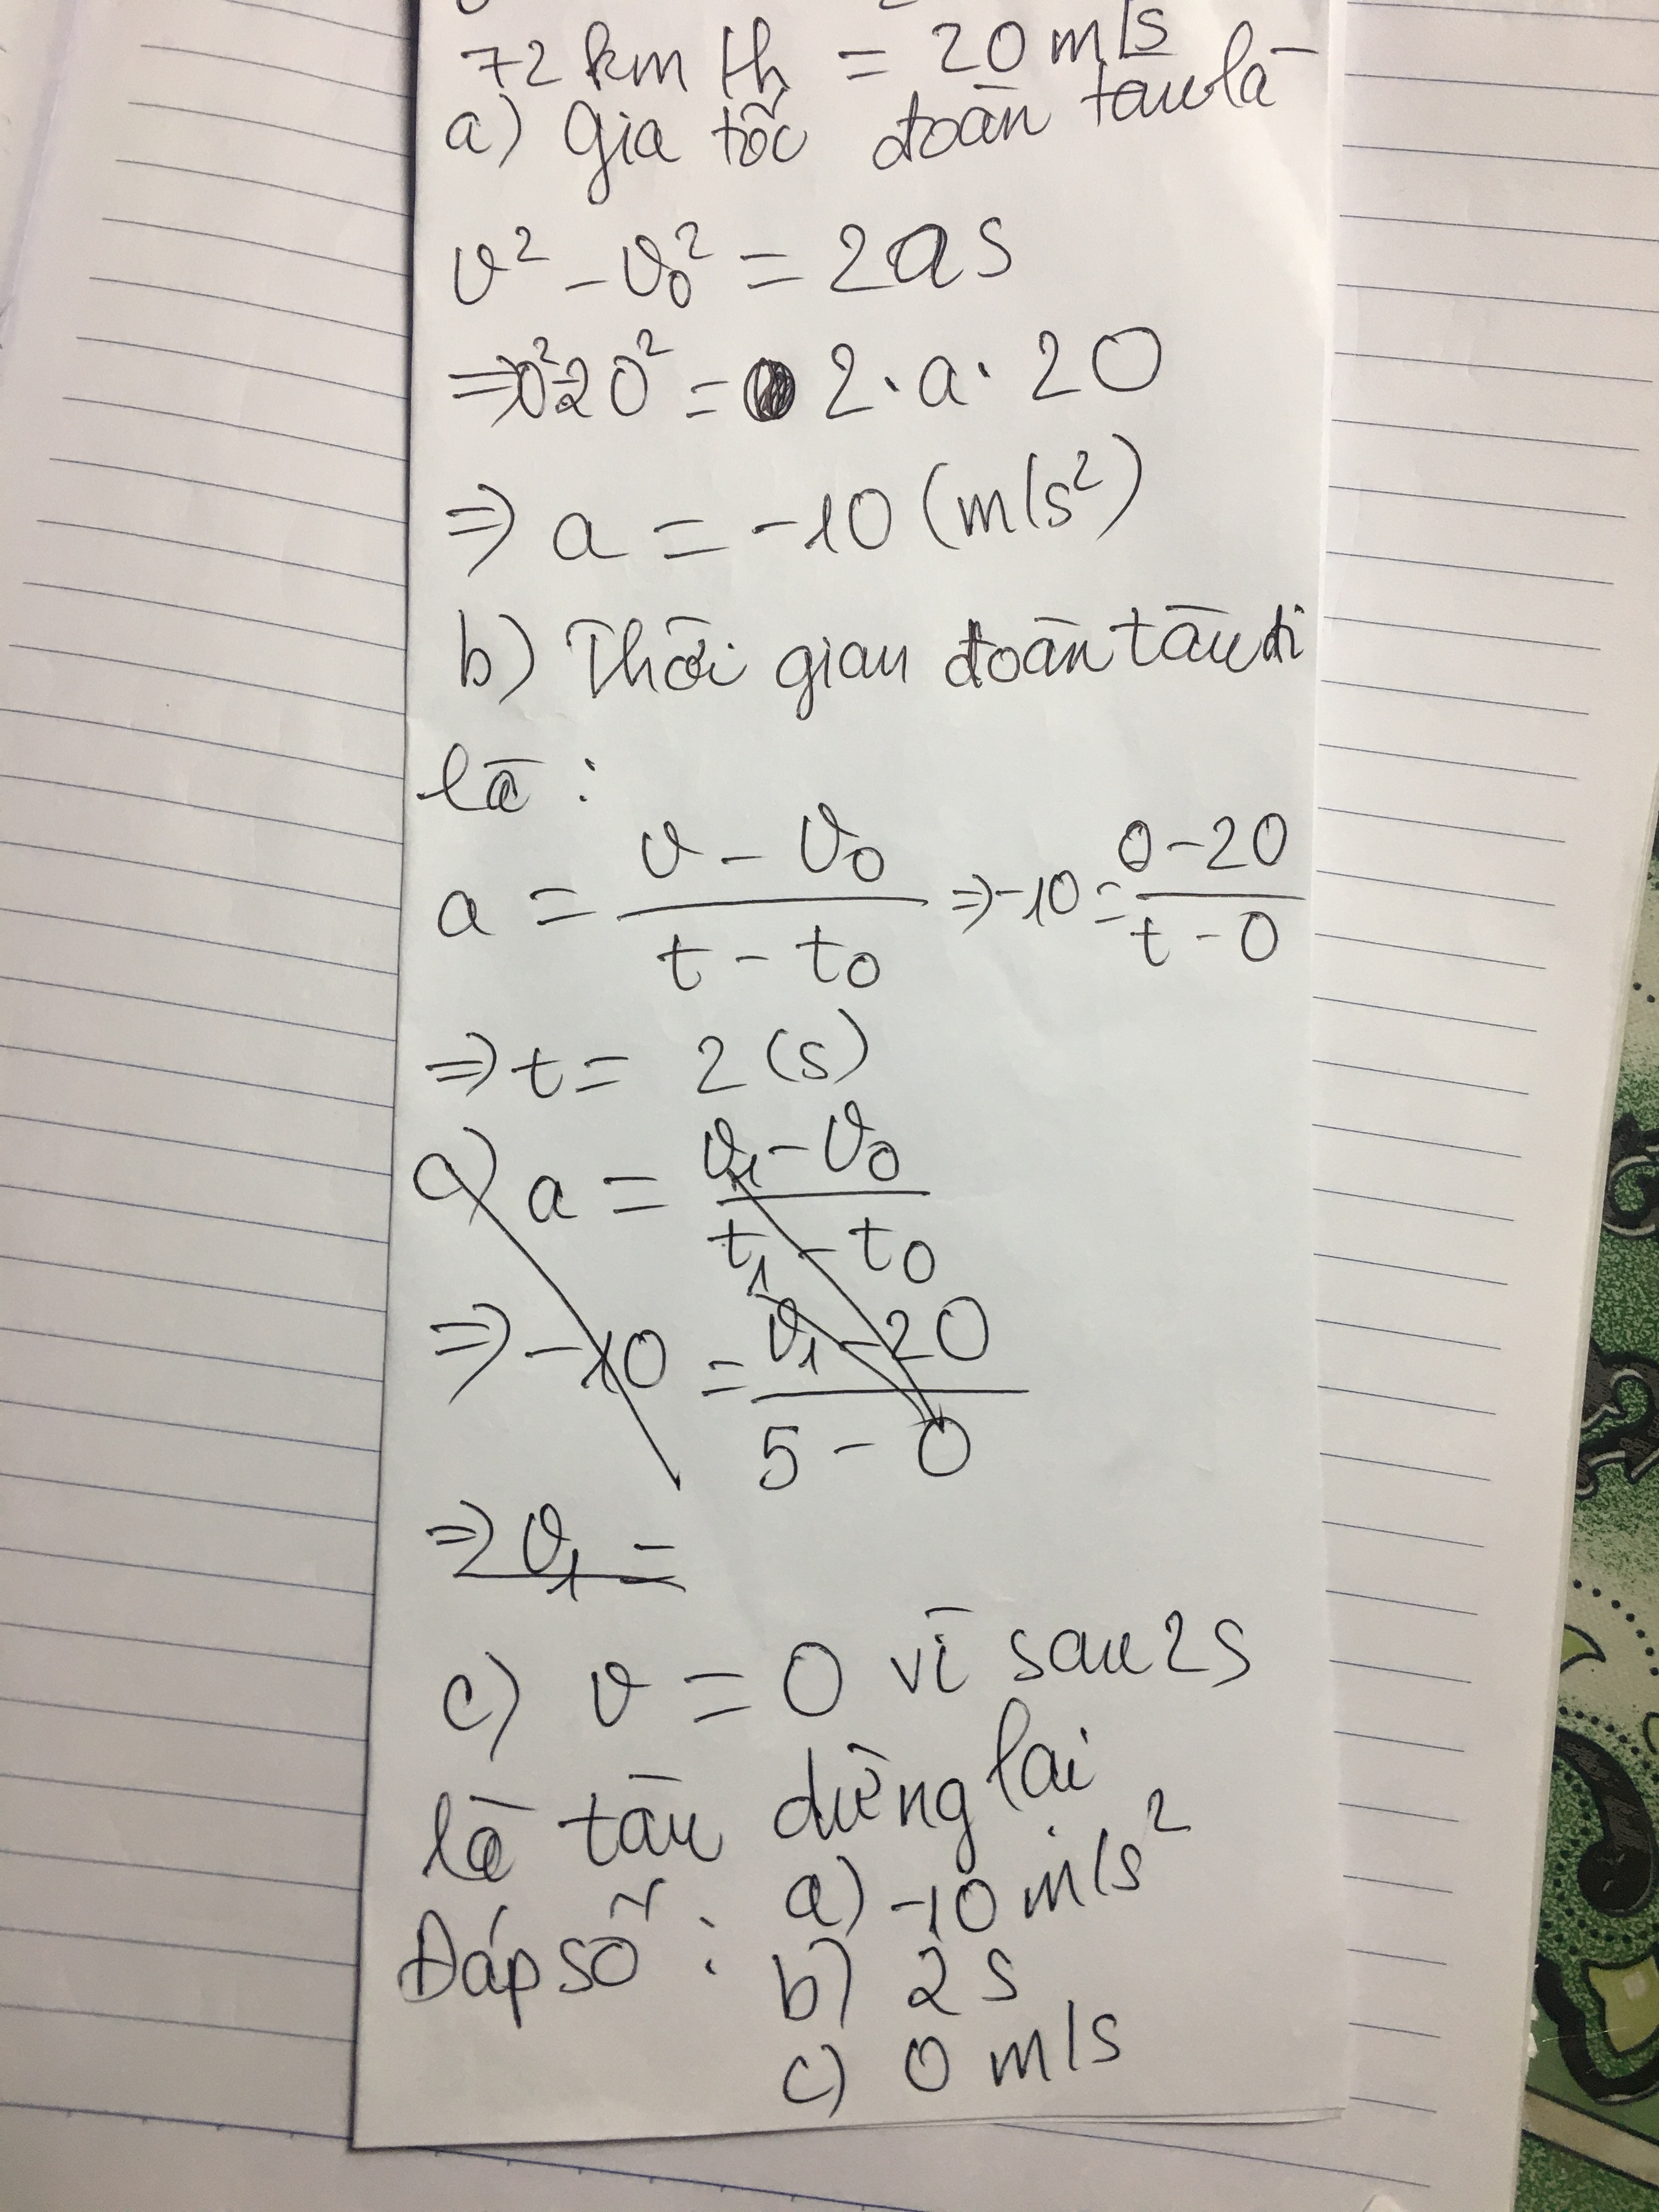 72 km/h = 20 m/s
a) Gia tốc đoàn tàu là
v² - v₀² = 2as
=> 0² - 20² = 2 · a · 20
=> a = -10 (m/s²)
b) Thời gian đoàn tàu đi
là :
a = (v - v₀)/(t - t₀) => -10 = (0 - 20)/(t - 0)
=> t = 2 (s)
c) a = (v₁ - v₀)/(t₁ - t₀)
=> -10 = (v₁ - 20)/(5 - 0)
=> v₁ =
c) v = 0 vì sau 2s
là tàu dừng lại
Đáp số : a) -10 m/s²
b) 2 s
c) 0 m/s